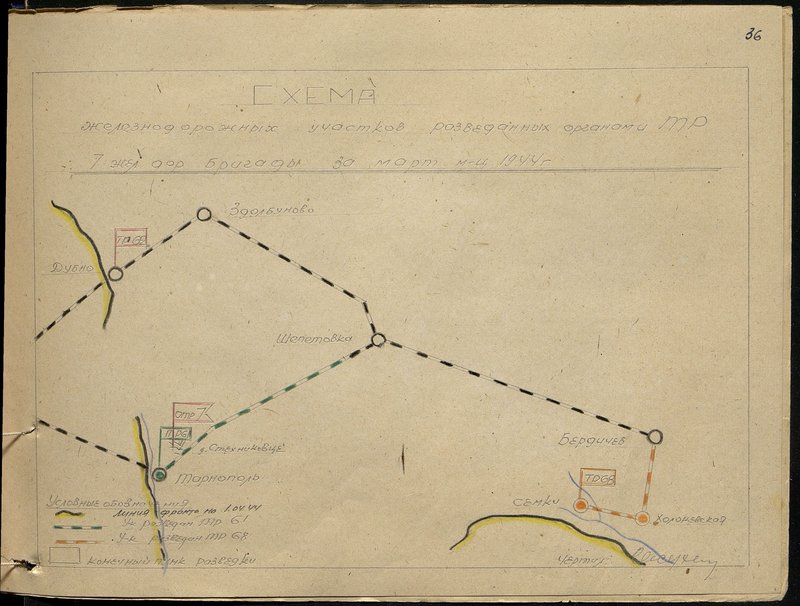 36
СХЕМА
железнодорожных участков разведанных органами ТР
7 жел дор бригады за март м-ц 1944г
Здолбуново
Дубно
Шепетовка
ОТР 7
з. Стехниковце
Тарнополь
Бердичев
TP68
Семки
Холоневская
Условные обозначения
линия фронта на 1.04.44
Уч разведан ТР 61
Уч-к разведан ТР 68
конечный пунк разведки
Чертил